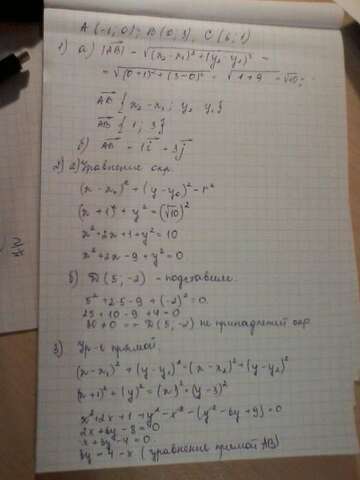 A (-1; 0); B (0; 3), C (6; 1)
1) а) |AB| = √(x₂-x₁)²+(y₂ y₁)² =
= √(0+1)²+(3-0)² = √1+9 = √10;
AB {x₂-x₁; y₂ y₁}
AB {1; 3}
б) AB = 1i + 3j
2) а) Уравнение окр.
(x-x₀)² + (y-y₀)² = r²
(x+1)² + y² = (√10)²
x²+2x+1+y² = 10
x²+2x-9+y² = 0
б) D (5; -2) - подставим.
5²+2·5-9+(-2)² = 0
25+10-9+4=0
30≠0 => D (5; -2) не принадлежит окр
3) Ур-е прямой.
(x-x₁)²+(y-y₁)²=(x-x₂)²+(y-y₂)²
(x+1)²+(y)²=(x)²+(y-3)²
x²+2x+1+y²-x²-(y²-6y+9)=0
2x+6y-8=0
x+3y-4=0
3y=4-x (уравнение прямой AB)